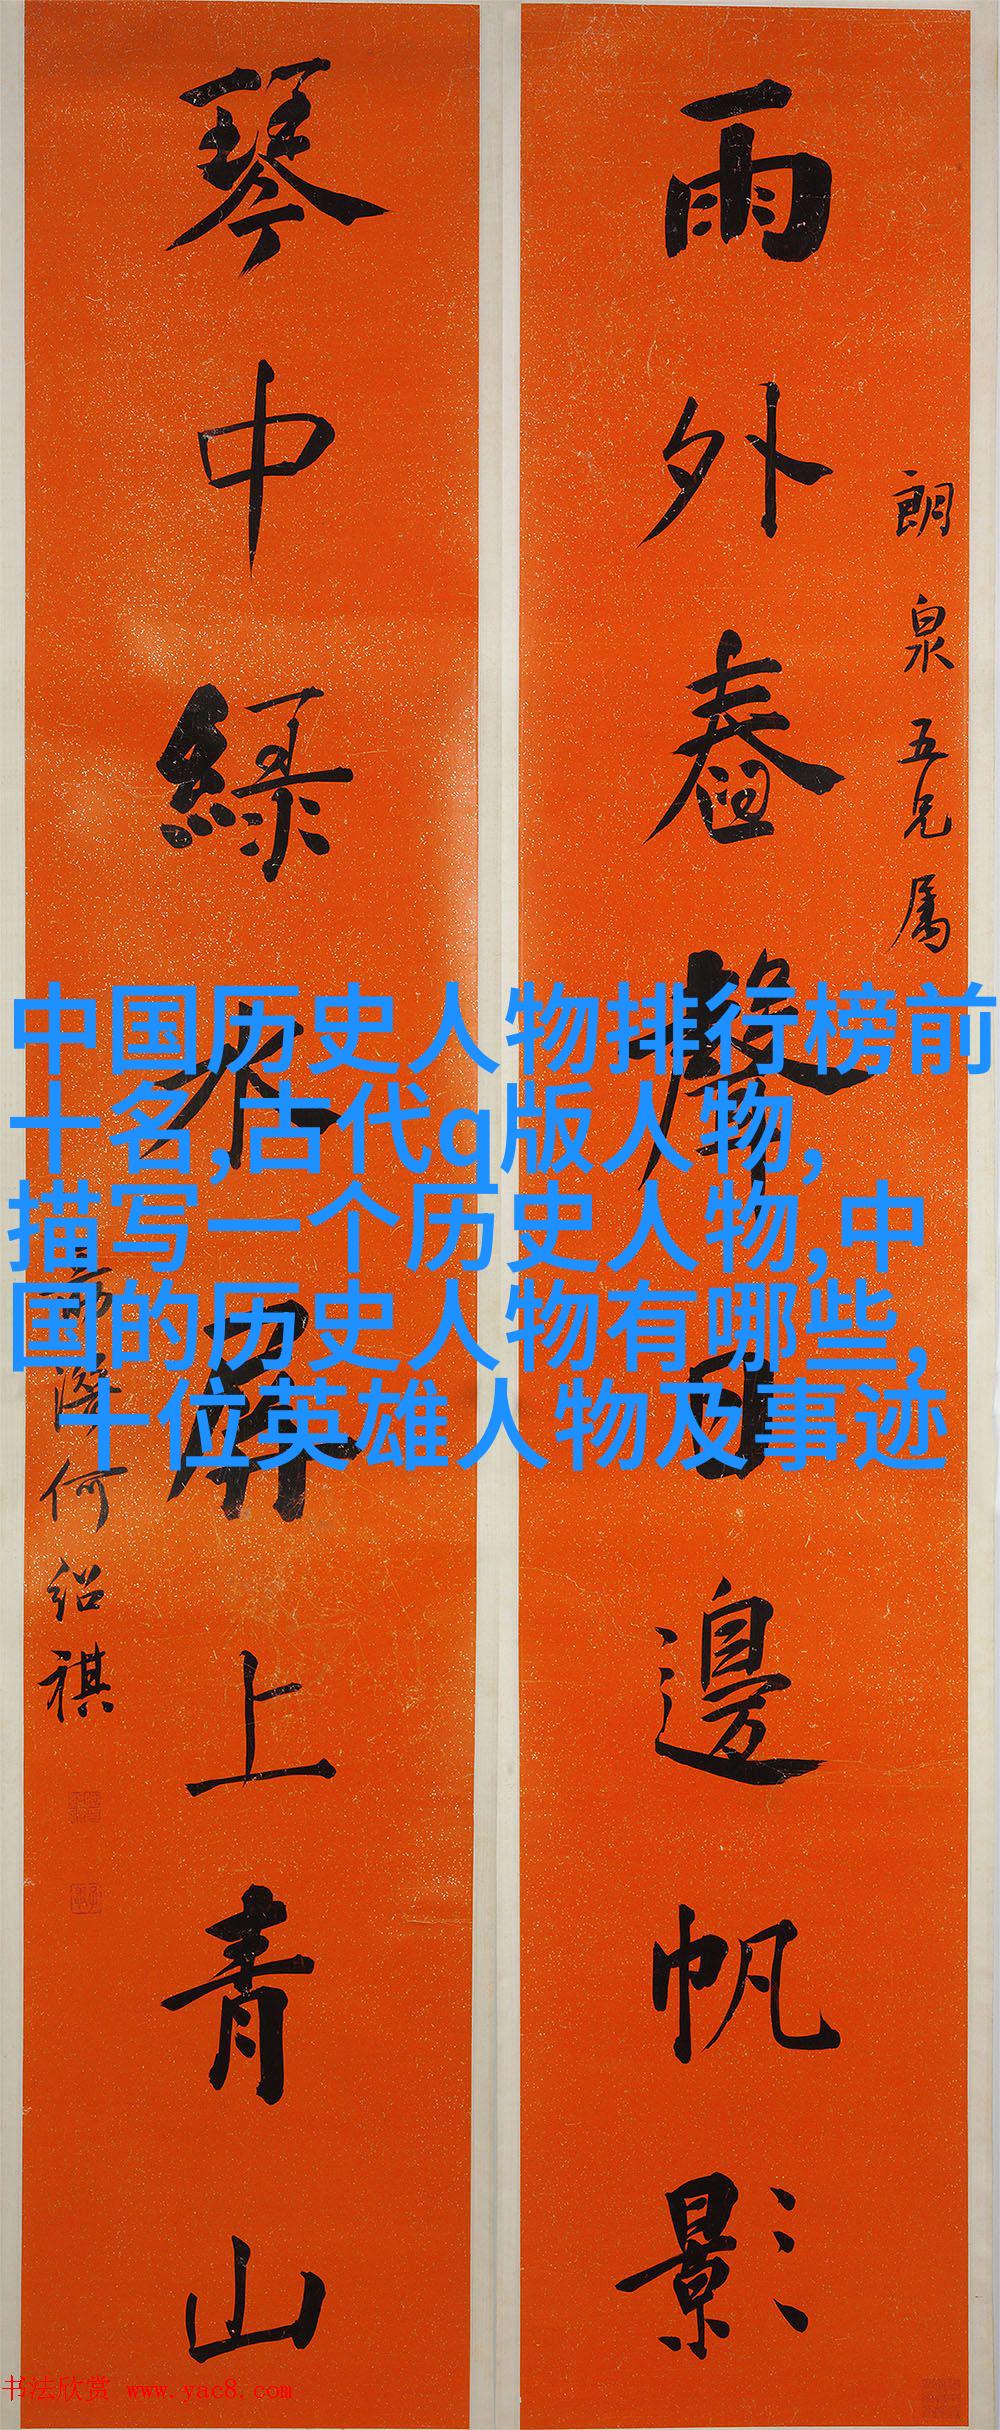 朗泉五兄属
雨外舂聲日邊帆影
琴中綠水屏上青山
何紹祺
中国历史人物排行榜前
十名,古代q版人物,
描写一个历史人物,中
国的历史人物有哪些,
十位英雄人物及事迹
书法欣赏 www.yac8.com